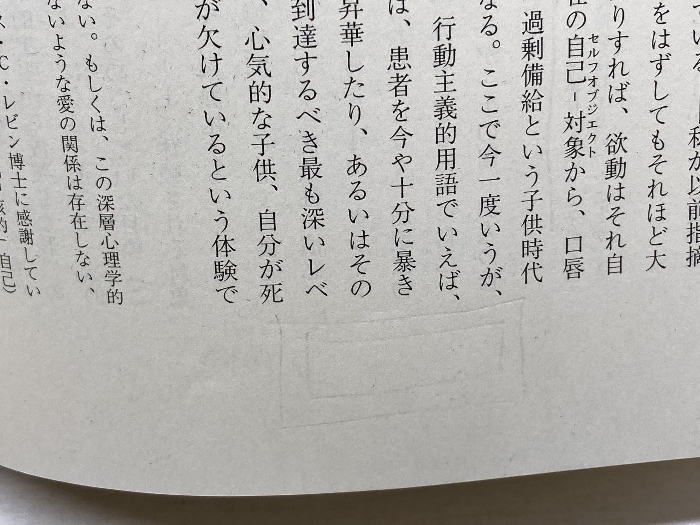 私が以前指摘
をはずしてもそれほど大
りすれば、欲動はそれ自
の自己-対象から、口唇
セルフオブジェクト
過剰備給という子供時代
なる。ここで今一度いうが、
行動主義的用語でいえば、
は、患者を今や十分に暴き
昇華したり、あるいはその
到達するべき最も深いレベ
、心気的な子供、自分が死
が欠けているという体験で
ない。もしくは、この深層心理学的
ないような愛の関係は存在しない、
ス・C・レビン博士に感謝してい
自己)